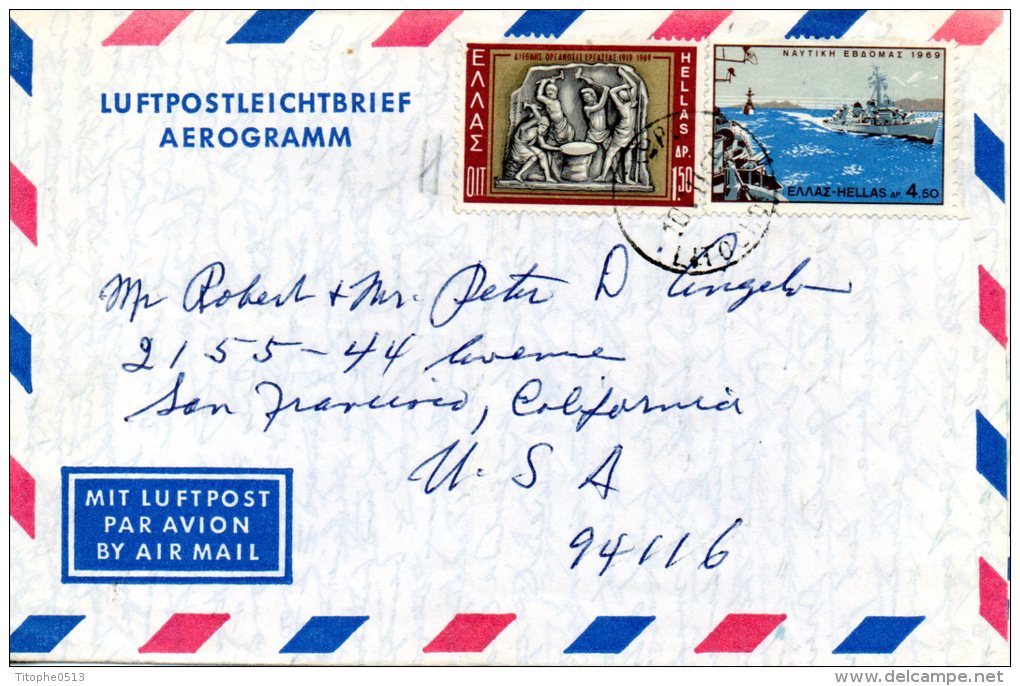 LUFTPOSTLEICHTBRIEF
AEROGRAMM
ΕΛΛΑΣ
ΔΙΕΘΝΗΣ ΟΡΓΑΝΩΣΙΣ ΕΡΓΑΣΙΑΣ 1919-1969
HELLAS
ΔΡ.
1.50
ΟΙΤ
ΝΑΥΤΙΚΗ ΕΒΔΟΜΑΣ 1969
ΕΛΛΑΣ-HELLAS ΔΡ. 4.50
10
LITOCHO
Mr Robert & Mr. Peter D Angelo
2155-44 Avenue
San Francisco, California
U. S A
94116
MIT LUFTPOST
PAR AVION
BY AIR MAIL
Titophe0513
delcampe.net